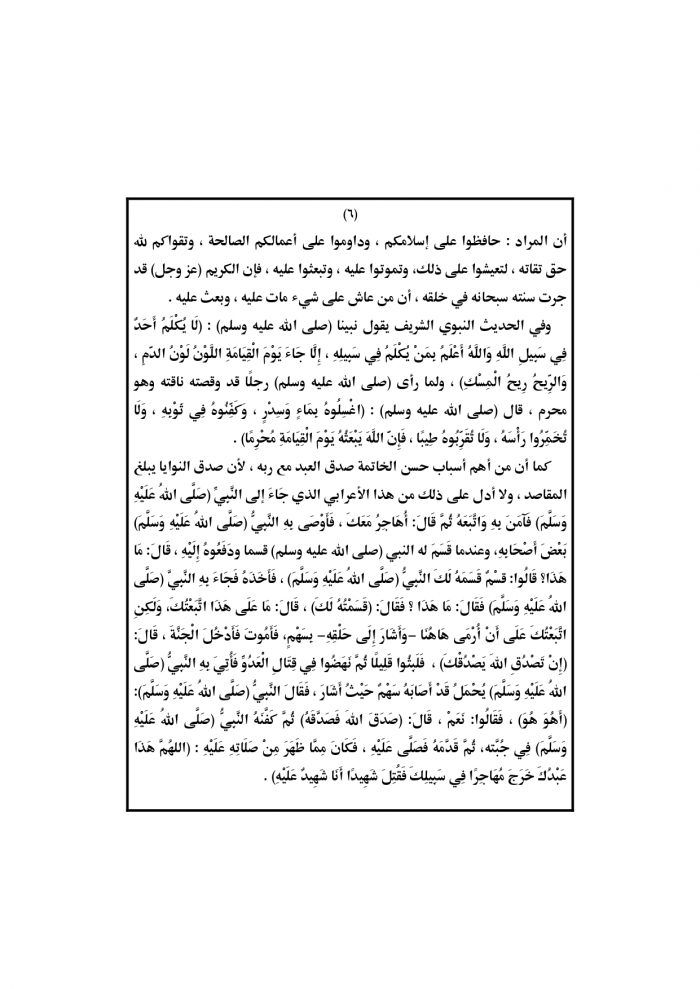 (٦)
أن المراد : حافظوا على إسلامكم ، وداوموا على أعمالكم الصالحة ، وتقواكم لله
حق تقاته ، لتعيشوا على ذلك، وتموتوا عليه ، وتبعثوا عليه ، فإن الكريم (عز وجل) قد
جرت سنته سبحانه في خلقه ، أن من عاش على شيء مات عليه ، وبعث عليه .
وفي الحديث النبوي الشريف يقول نبينا (صلى الله عليه وسلم) : (لَا يُكْلَمُ أَحَدٌ
فِي سَبِيلِ اللَّهِ وَاللَّهُ أَعْلَمُ بِمَنْ يُكْلَمُ فِي سَبِيلِهِ ، إِلَّا جَاءَ يَوْمَ الْقِيَامَةِ اللَّوْنُ لَوْنُ الدَّمِ ،
وَالرِّيحُ رِيحُ الْمِسْكِ) ، ولما رأى (صلى الله عليه وسلم) رجلًا قد وقصته ناقته وهو
محرم ، قال (صلى الله عليه وسلم) : (اغْسِلُوهُ بِمَاءٍ وَسِدْرٍ ، وَكَفِّنُوهُ فِي ثَوْبِهِ ، وَلَا
تُخَمِّرُوا رَأْسَهُ ، وَلَا تُقَرِّبُوهُ طِيبًا ، فَإِنَّ اللَّهَ يَبْعَثُهُ يَوْمَ الْقِيَامَةِ مُحْرِمًا) .
كما أن من أهم أسباب حسن الخاتمة صدق العبد مع ربه ، لأن صدق النوايا يبلغ
المقاصد ، ولا أدل على ذلك من هذا الأعرابي الذي جَاءَ إلى النَّبِيِّ (صَلَّى اللهُ عَلَيْهِ
وَسَلَّمَ) فَآمَنَ بِهِ وَاتَّبَعَهُ ثُمَّ قَالَ: أُهَاجِرُ مَعَكَ ، فَأَوْصَى بِهِ النَّبِيُّ (صَلَّى اللهُ عَلَيْهِ وَسَلَّمَ)
بَعْضَ أَصْحَابِهِ، وعندما قَسَمَ له النبي (صلى الله عليه وسلم) قسما ودَفَعُوهُ إِلَيْهِ ، قَالَ: مَا
هَذَا؟ قَالُوا: قِسْمٌ قَسَمَهُ لَكَ النَّبِيُّ (صَلَّى اللهُ عَلَيْهِ وَسَلَّمَ) ، فَأَخَذَهُ فَجَاءَ بِهِ النَّبِيَّ (صَلَّى
اللهُ عَلَيْهِ وَسَلَّمَ) فَقَالَ: مَا هَذَا ؟ فَقَالَ: (قَسَمْتُهُ لَكَ) ، قَالَ: مَا عَلَى هَذَا اتَّبَعْتُكَ، وَلَكِنِ
اتَّبَعْتُكَ عَلَى أَنْ أُرْمَى هَاهُنَا –وَأَشَارَ إِلَى حَلْقِهِ– بِسَهْمٍ، فَأَمُوتَ فَأَدْخُلَ الْجَنَّةَ ، قَالَ:
(إِنْ تَصْدُقِ اللهَ يَصْدُقْكَ) ، فَلَبِثُوا قَلِيلًا ثُمَّ نَهَضُوا فِي قِتَالِ الْعَدُوِّ فَأُتِيَ بِهِ النَّبِيُّ (صَلَّى
اللهُ عَلَيْهِ وَسَلَّمَ) يُحْمَلُ قَدْ أَصَابَهُ سَهْمٌ حَيْثُ أَشَارَ ، فَقَالَ النَّبِيُّ (صَلَّى اللهُ عَلَيْهِ وَسَلَّمَ):
(أَهُوَ هُوَ) ، فَقَالُوا: نَعَمْ ، قَالَ: (صَدَقَ اللهَ فَصَدَقَهُ) ثُمَّ كَفَّنَهُ النَّبِيُّ (صَلَّى اللهُ عَلَيْهِ
وَسَلَّمَ) فِي جُبَّتِه، ثُمَّ قَدَّمَهُ فَصَلَّى عَلَيْهِ ، فَكَانَ مِمَّا ظَهَرَ مِنْ صَلَاتِهِ عَلَيْهِ : (اللهُمَّ هَذَا
عَبْدُكَ خَرَجَ مُهَاجِرًا فِي سَبِيلِكَ فَقُتِلَ شَهِيدًا أَنَا شَهِيدٌ عَلَيْهِ) .